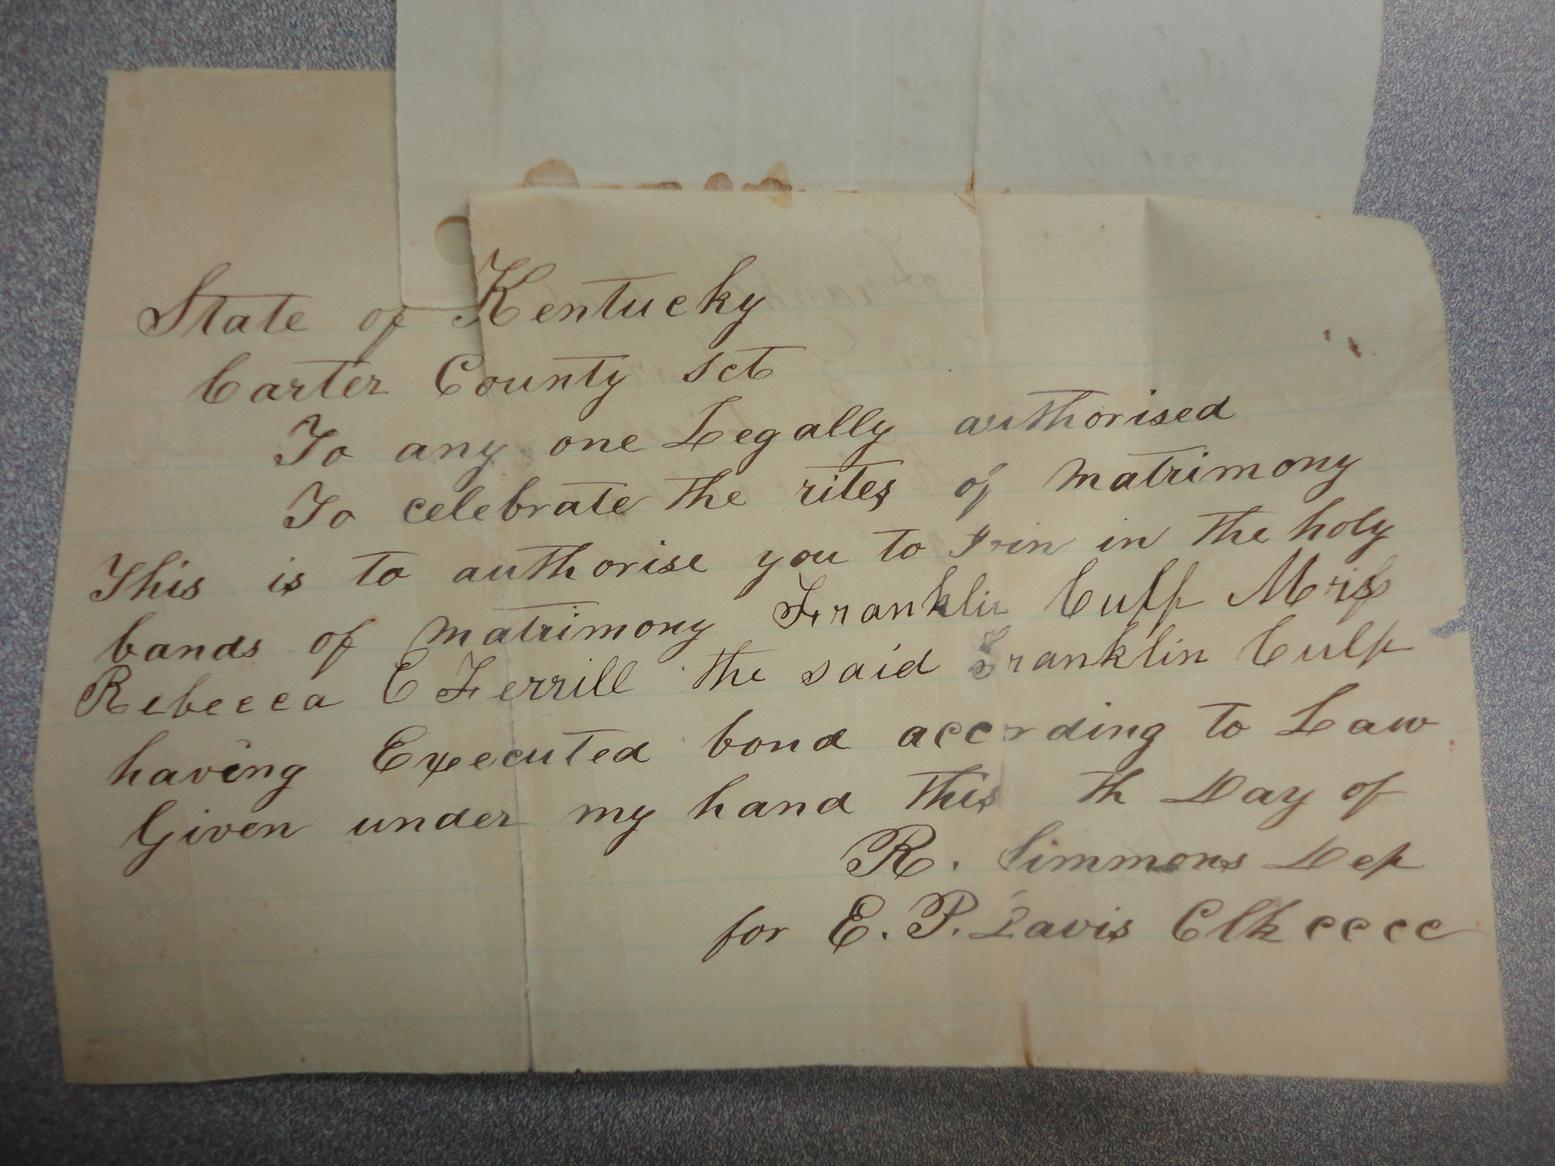 State of Kentucky
Carter County Sct
To any one Legally authorised
To celebrate the rites of Matrimony
This is to authorise you to Join in the holy
bands of Matrimony Franklin Culp Miss
Rebecca E Ferrill the said Franklin Culp
having Executed bond according to Law
Given under my hand this th Day of
R. Simmons Dep
for E. P. Davis Clk cccc